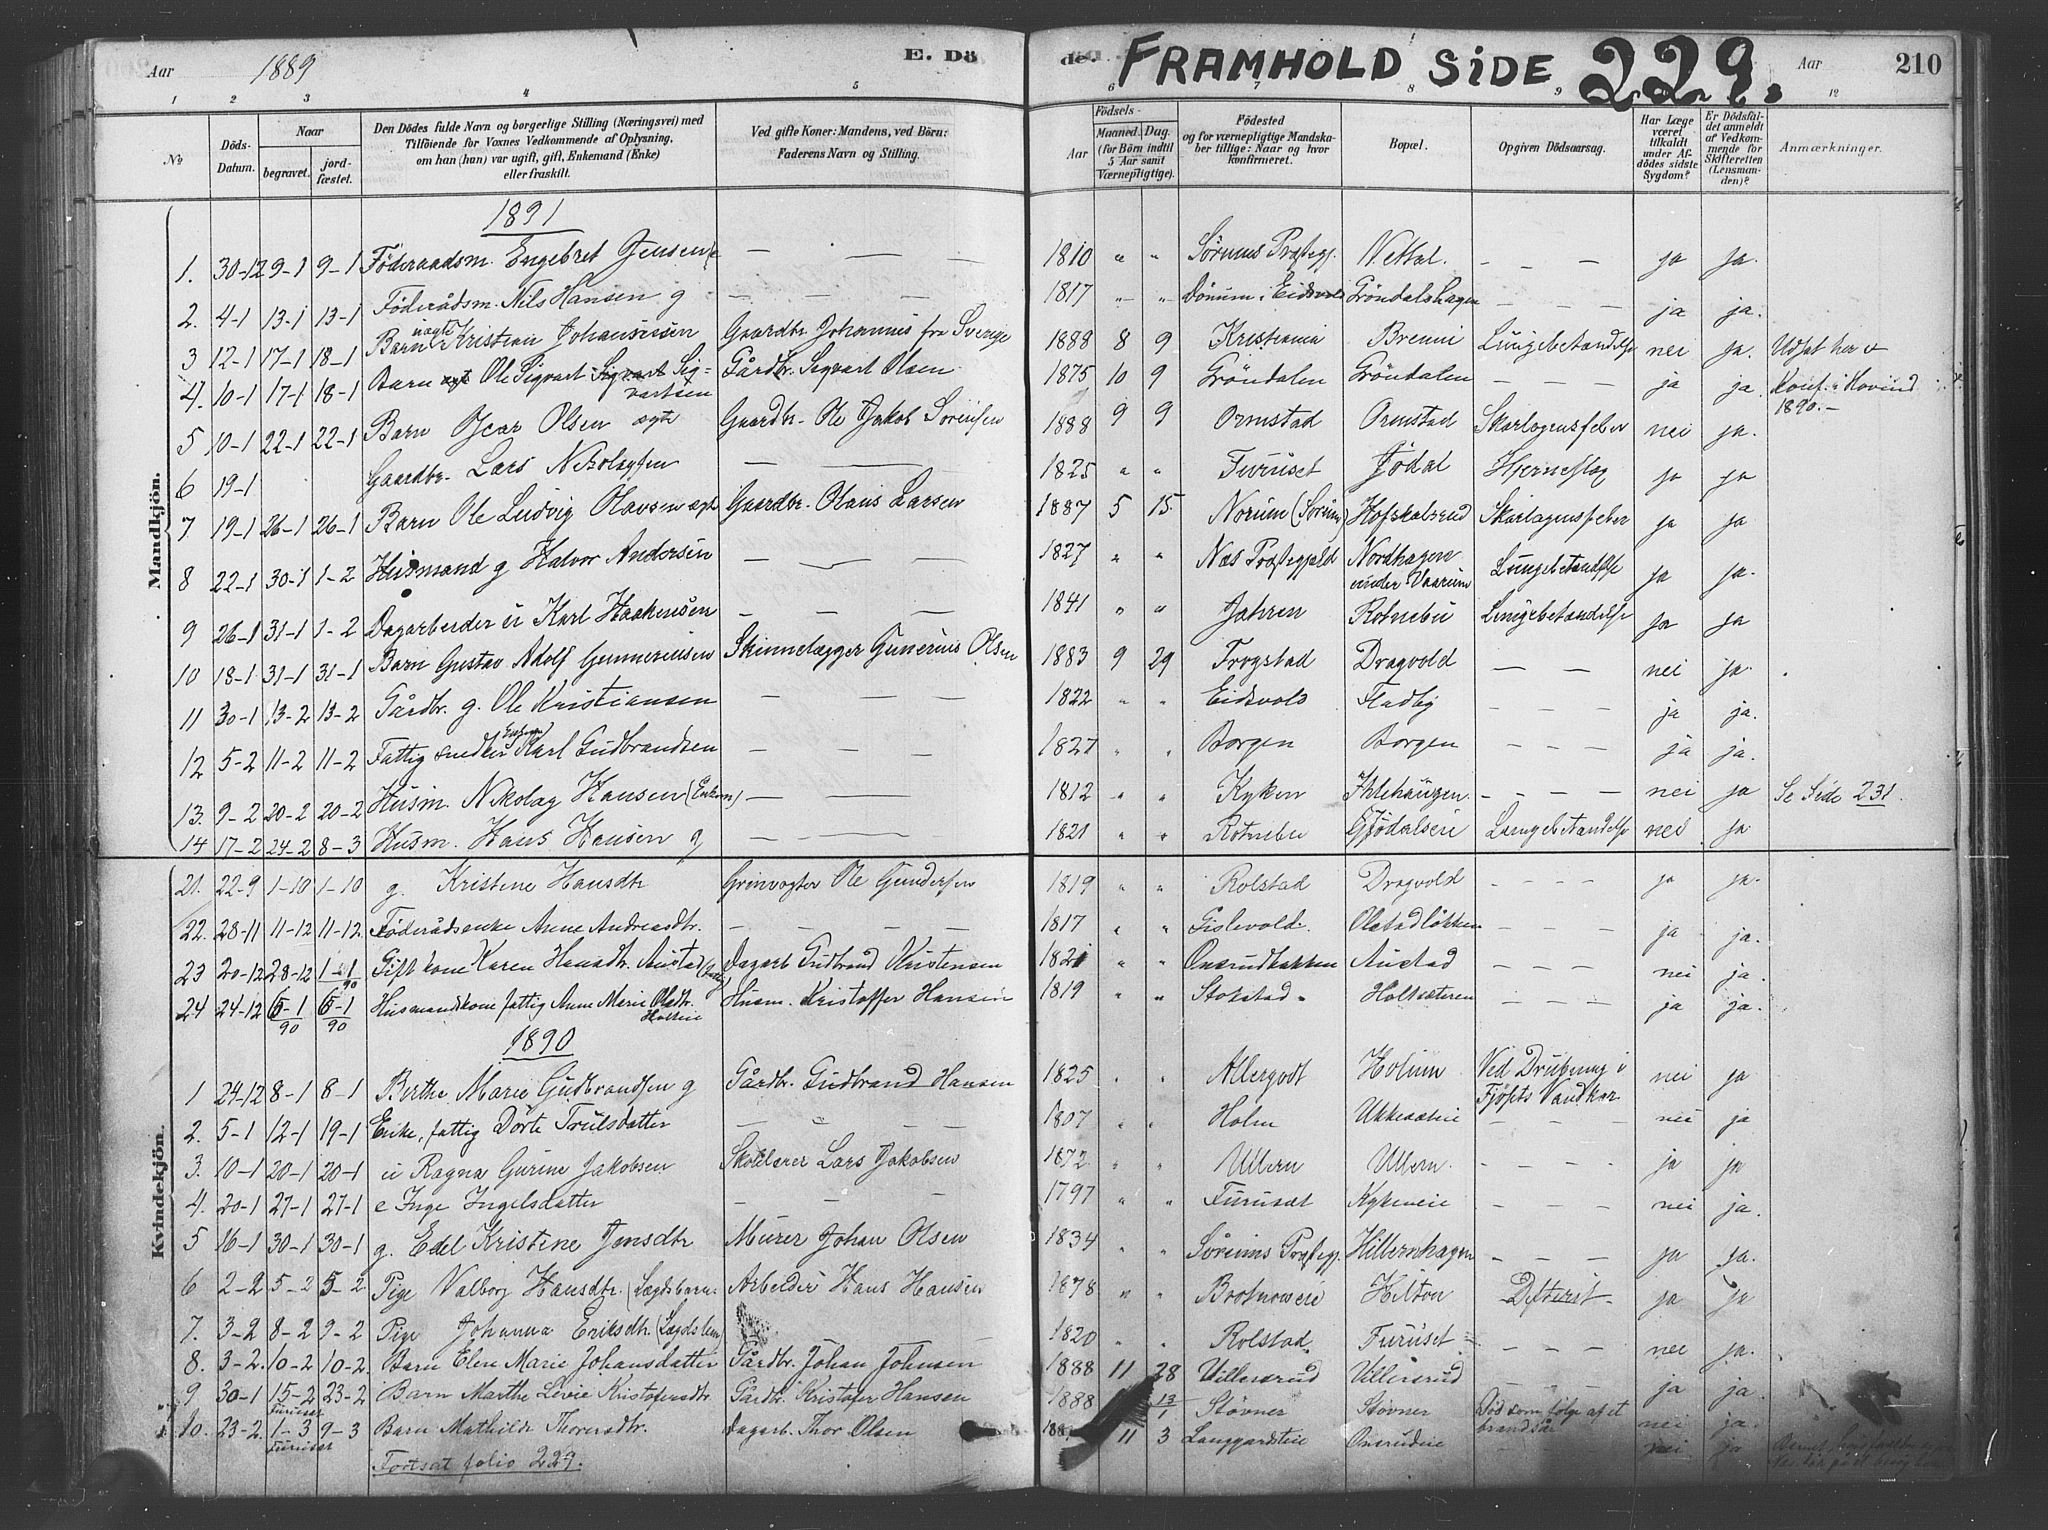 Aar 1889 E. Dö de. FRAMHOLD SiDE 229. Aar 210
1 2 3 4 5 6 7 8 9 12
№
Döds-Datum.
Naar
begravet.
jord-fæstet.
Den Dödes fulde Navn og borgerlige Stilling (Næringsvei) med
Tilföiende for Voxnes Vedkommende af Oplysning,
om han (hun) var ugift, gift, Enkemand (Enke)
eller fraskilt.
Ved gifte Koner: Mandens, ved Börn:
Faderens Navn og Stilling.
Födsels-
Aar
Maaned. Dag.
(for Börn indtil
5 Aar samt
Værnepligtige).
Födested
og for værnepligtige Mandska-
ber tillige: Naar og hvor
konfirmeret.
Bopæl.
Opgiven Dödsaarsag.
Har Læge
været
tilkaldt
under Af-
dödes sidste
Sygdom?
Er Dödsfal-
det anmeldt
af Vedkom-
mende for
Skifteretten
(Lensman-
den)?
Anmærkninger.
Mandkjön.
1891
1. 30-12 9-1 9-1 Föderaadsm. Engebret Jensen — — — 1810 " " Sørums Præstegj. Nettal. — — — ja ja.
2. 4-1 13-1 13-1 Föderådsm. Nils Hansen g — — — 1817 " " Dönum i Eidsvold Gröndalshagen — — — ja ja.
3 12-1 17-1 18-1 Barn uægte Kristian Johannesen Gaardbr. Johannes fra Sverige 1888 8 9 Kristiania Brenni Lungebetændelse nei ja. Udsat her &
4. 10-1 17-1 18-1 Barn ægte Ole Sigvart Sigvart Sig-
vartsen Gårdbr. Sigvart Olsen 1875 10 9 Gröndalen Gröndalen — — — ja ja. Konf. i Hovind
1890.-
5 10-1 22-1 22-1 Barn Oscar Olsen ægte Gaardbr. Ole Jakob Sörensen 1888 9 9 Ormstad Ormstad Skarlagensfeber nei ja.
6 19-1 Gaardbr. Lars Nikolaysen — — 1825 " " Furuset Jödal Hjerneslag ja ja
7 19-1 26-1 26-1 Barn Ole Ludvig Olavsen ægte Gaardbr. Olaus Larsen 1887 5 15. Norum (Sørum) Hofskalsrud Skarlagensfeber ja ja
8 22-1 30-1 1-2 Husmand g Halvor Andersen — — — 1827 " " Næs Præstegjeld Nordhagen
under Vaarum Lungebetændelse ja ja.
9 26-1 31-1 1-2 Dagarbeider u Karl Haakensen — — — 1841 " " Jahren Rotnebu Lungebetændelse ja ja
10 18-1 31-1 31-1 Barn Gustav Adolf Gunneriusen Skinnelægger Gunerius Olsen 1883 9 29 Frogstad Dragvold — — nei ja.
11 30-1 13-2 13-2 Gårdbr. g. Ole Kristiansen — — — 1822 " " Eidsvold Fladby — — — ja ja.
12 5-2 11-2 11-2 Fattig snedker Enkem Karl Gudbrandsen — — — 1827 " " Borgen Borgen — — — ja ja.
13. 9-2 20-2 20-2 Husm. Nikolay Hansen (Enkem) — — — 1812 " " Kyken Ihlehaugen. — — — nei ja Se Side 231.
14 17-2 24-2 8-3 Husm. Hans Hansen g — — 1821 " " Rotnebu Gjödalseie Lungebetændelse nei ja
Kvindekjön.
21. 22-9 1-10 1-10 g. Kristene Hansdtr Grinvogter Ole Gundersen 1819 " " Rolstad Dragvold — — — ja ja.
22. 28-11 11-12 11-12 Föderådsenke Anne Andreasdtr. — — — — 1817 " " Gislevold. Olstadløkken — — — ja ja.
23 20-12 28-12 1-1/90 Gift kone Karen Hansdtr. Austad Dagarb Gudbrand Kristensen 1821 " " Onsrudbakken Austad — — — nei ja.
24 24-12 6-1/90 6-1/90 Husmandskone fattig Anne Marie Olsdtr.
Holteie Husm. Kristoffer Hansen 1819 " " Stokstad " Holtsæteren — — — ja ja.
1890
1 24-12 8-1 8-1 Berthe Marie Gudbrandsen g Gårdbr. Gudbrand Hansen 1825 " " Allergodt Holum Ved Drukning i
Fjøsets Vandkar nei ja
2. 5-1 12-1 19-1 Enke, fattig Dorte Trulsdatter — — — 1807 " " Holm Ukkesæteie — — — nei ja
3. 10-1 20-1 20-1 u Ragna Gurine Jakobsen Skolelærer Lars Jakobsen 1872 " " Ullern Ullern. — — — ja ja
4. 20-1 27-1 27-1 e Inge Ingelsdatter — — — 1797 " " Furusæt Kykeneie nei ja.
5 16-1 30-1 30-1 g. Edel Kristene Jensdtr Murer Johan Olsen 1834 " " Sørums Præstegj. Hillernhagen — — — ja ja.
6 2-2 5-2 5-2 Pige Valborg Hansdtr. (Lægdsbarn) Arbeider Hans Hansen 1878 " " Brotnoweie Hilton Difterit. ja ja
7. 3-2 8-2 9-2 Pige Johanna Eriksdtr (Lægdslem) 1820 " " Rolstad. Furuset — — — nei ja.
8. 3-2. 10-2 10-2. Barn Elene Marie Johansdatter Gårdbr. Johan Johnsen 1888 11 28 Villersrud Villersrud — — — ja ja
9 30-1 15-2
Furuset 23-2 Barn Marthe Levie Kristofersdtr Gårdbr Kristofer Hansen 1888 13/1 Støvner Støvner Død som følge af et
brandsår nei ja
10. 23-2. 1-3
Furuset 9-3 Barn Mathilde Thorersdtr. Dagarb. Thor Olsen 188 11 3 Langgardseie Onsrudeie nei ja
Fortsat folio 229.